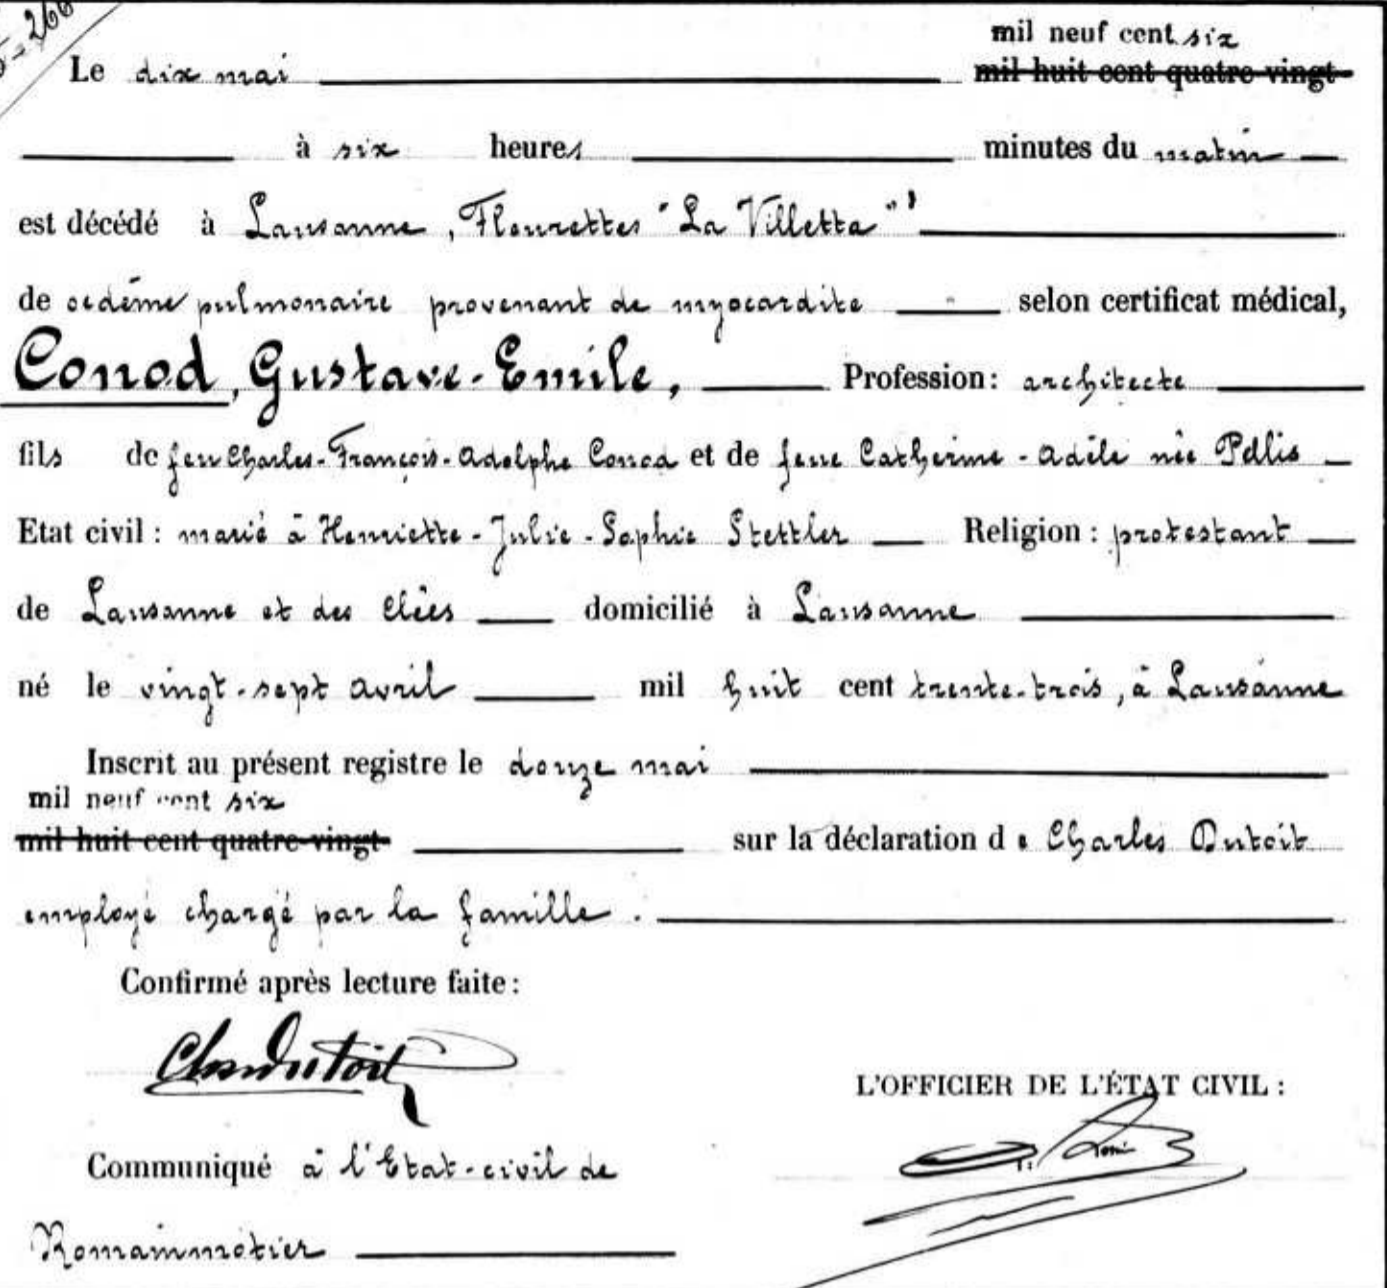 266
mil neuf cent six
Le dix mai mil huit cent quatre-vingt-
à six heures minutes du matin
est décédé à Lausanne, Fleurettes "La Villetta"
de œdème pulmonaire provenant de myocardite selon certificat médical,
Conod, Gustave-Emile, Profession: architecte
fils de feu Charles-François-Adolphe Conod et de feue Catherine-Adèle née Pellis
Etat civil : marié à Henriette-Julie-Sophie Stettler Religion : protestant
de Lausanne et des Clées domicilié à Lausanne
né le vingt-sept avril mil huit cent trente-trois, à Lausanne
Inscrit au présent registre le douze mai
mil neuf cent six
mil huit cent quatre-vingt- sur la déclaration de Charles Dutoit
employé chargé par la famille.
Confirmé après lecture faite :
Ch. Dutoit
L'OFFICIER DE L'ÉTAT CIVIL :
Communiqué à l'Etat-civil de
Romainmôtier